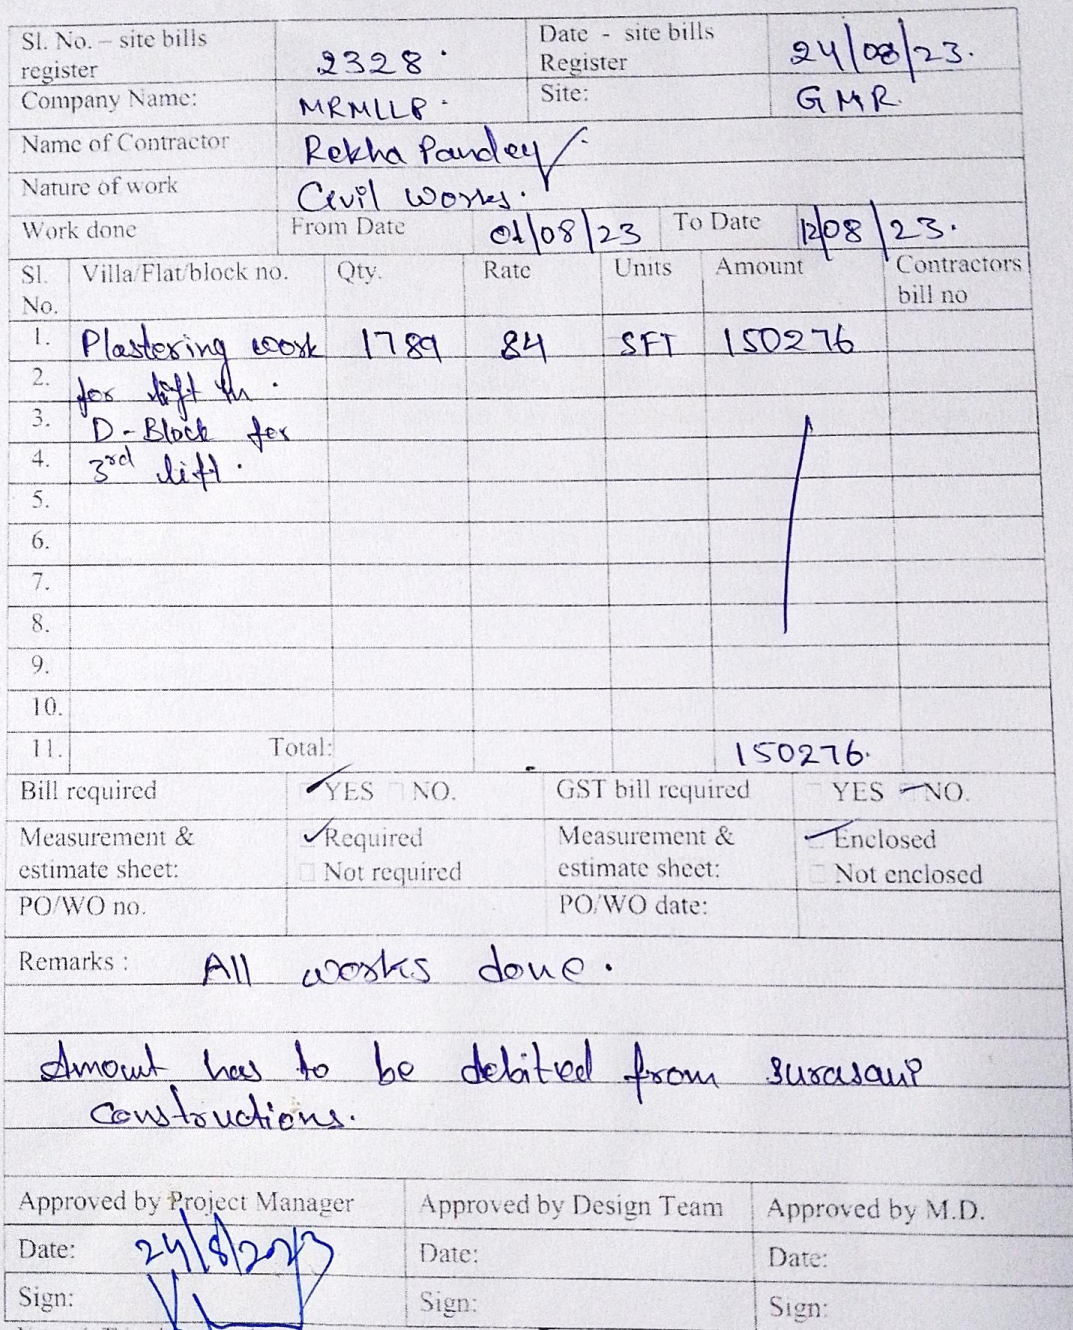 Sl. No. – site bills register 2328. Date - site bills Register 24/08/23.
Company Name: MRMLLP. Site: GMR.
Name of Contractor Rekha Pandey
Nature of work Civil Works.
Work done From Date 01/08/23 To Date 12/08/23.
Sl. No. Villa/Flat/block no. Qty. Rate Units Amount Contractors bill no
1. Plastering work 1789 84 SFT 150276
2. for lift in.
3. D-Block for
4. 3rd lift.
5.
6.
7.
8.
9.
10.
11. Total: 150276.
Bill required YES NO. GST bill required YES NO.
Measurement & estimate sheet: Required Not required Measurement & estimate sheet: Enclosed Not enclosed
PO/WO no. PO/WO date:
Remarks : All works done.
Amount has to be debited from surasani
constructions.
Approved by Project Manager Approved by Design Team Approved by M.D.
Date: 24/8/2023 Date: Date:
Sign: Sign: Sign: